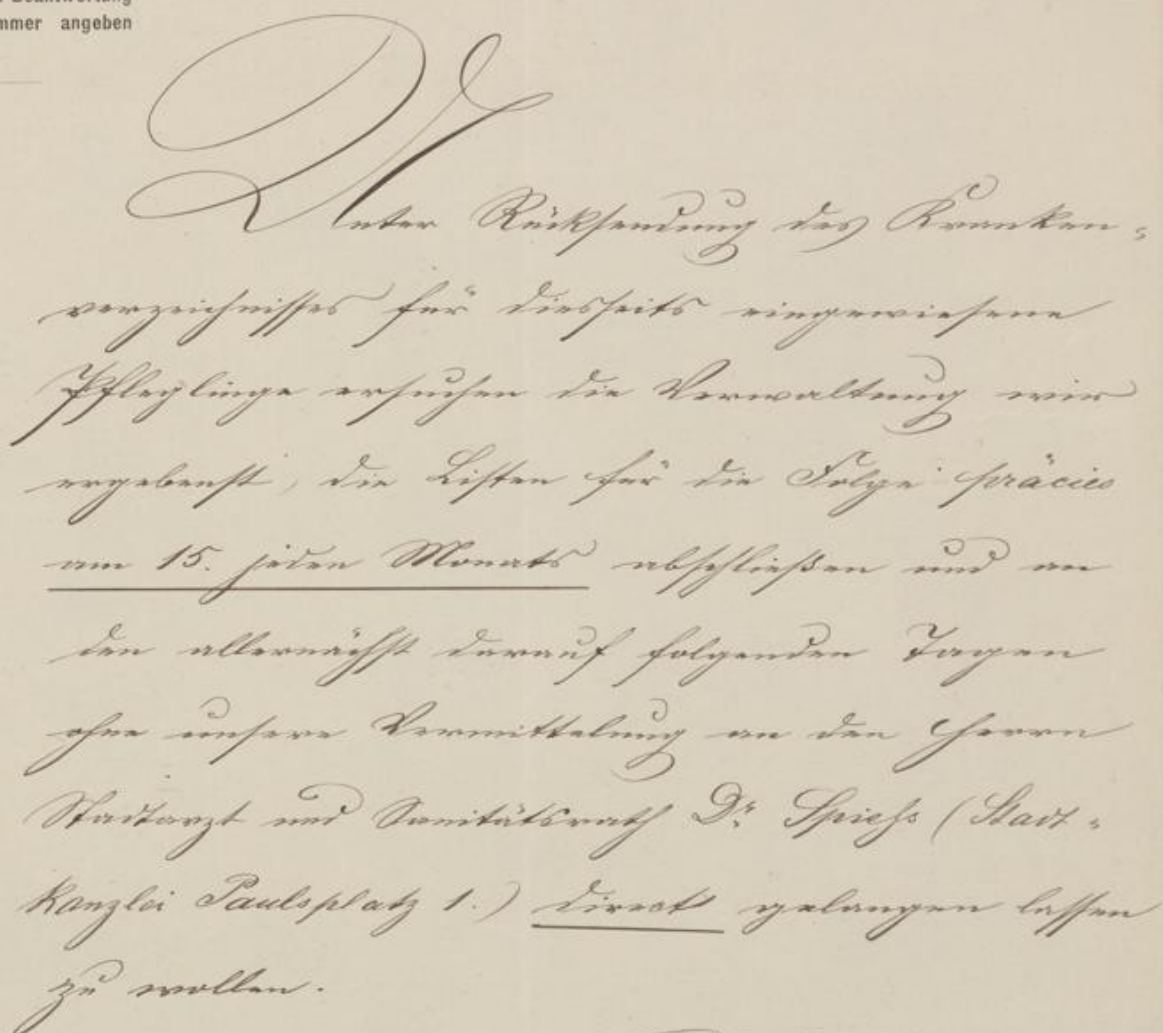 Beantwortung
mmer angeben
Unter Rücksendung des Kranken-
verzeichnisses für diesseits eingewiesene
Pfleglinge ersuchen die Verwaltung wir
ergebenst, die Listen für die Folge präcies
am 15. jeden Monats abschließen und an
den allernächst darauf folgenden Tagen
ohne unsere Vermittelung an den Herrn
Stadtarzt und Sanitätsrath Dr. Spiess (Stadt-
kanzlei Paulsplatz 1.) direct gelangen lassen
zu wollen.